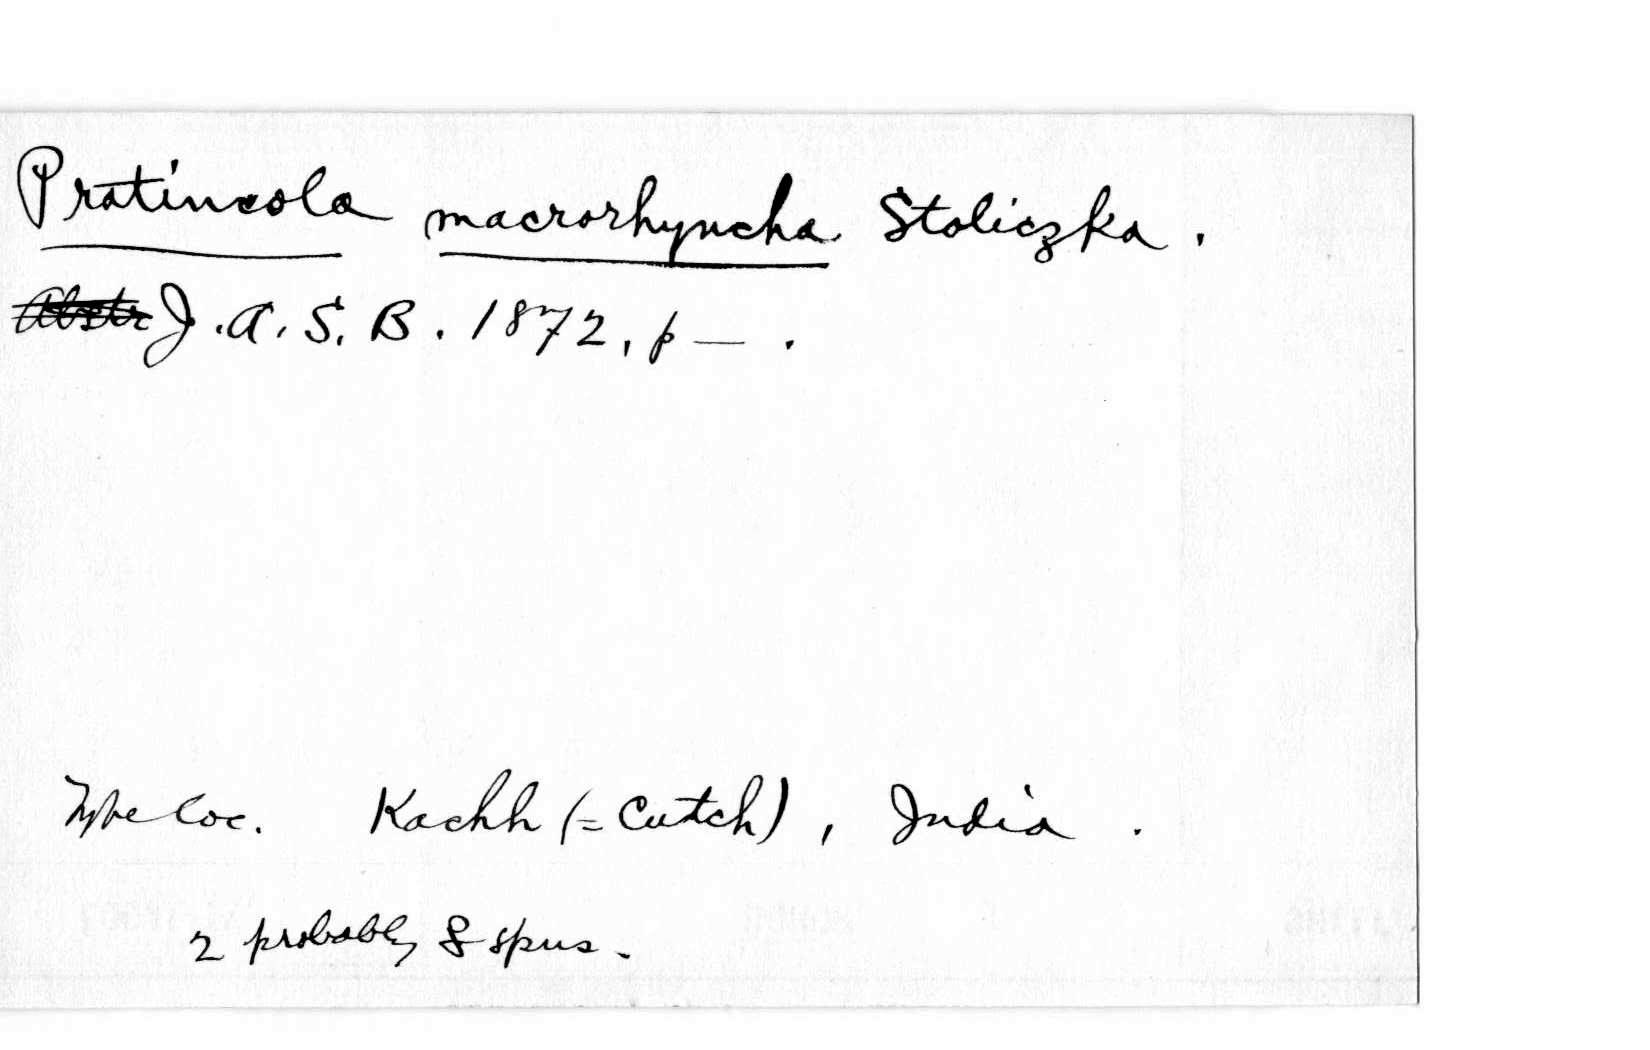 Pratincola macrorhyncha Stoliczka.
J.A.S.B. 1872, p — .
Type loc. Kachh (= Cutch), India.
2 probably 8 spms.